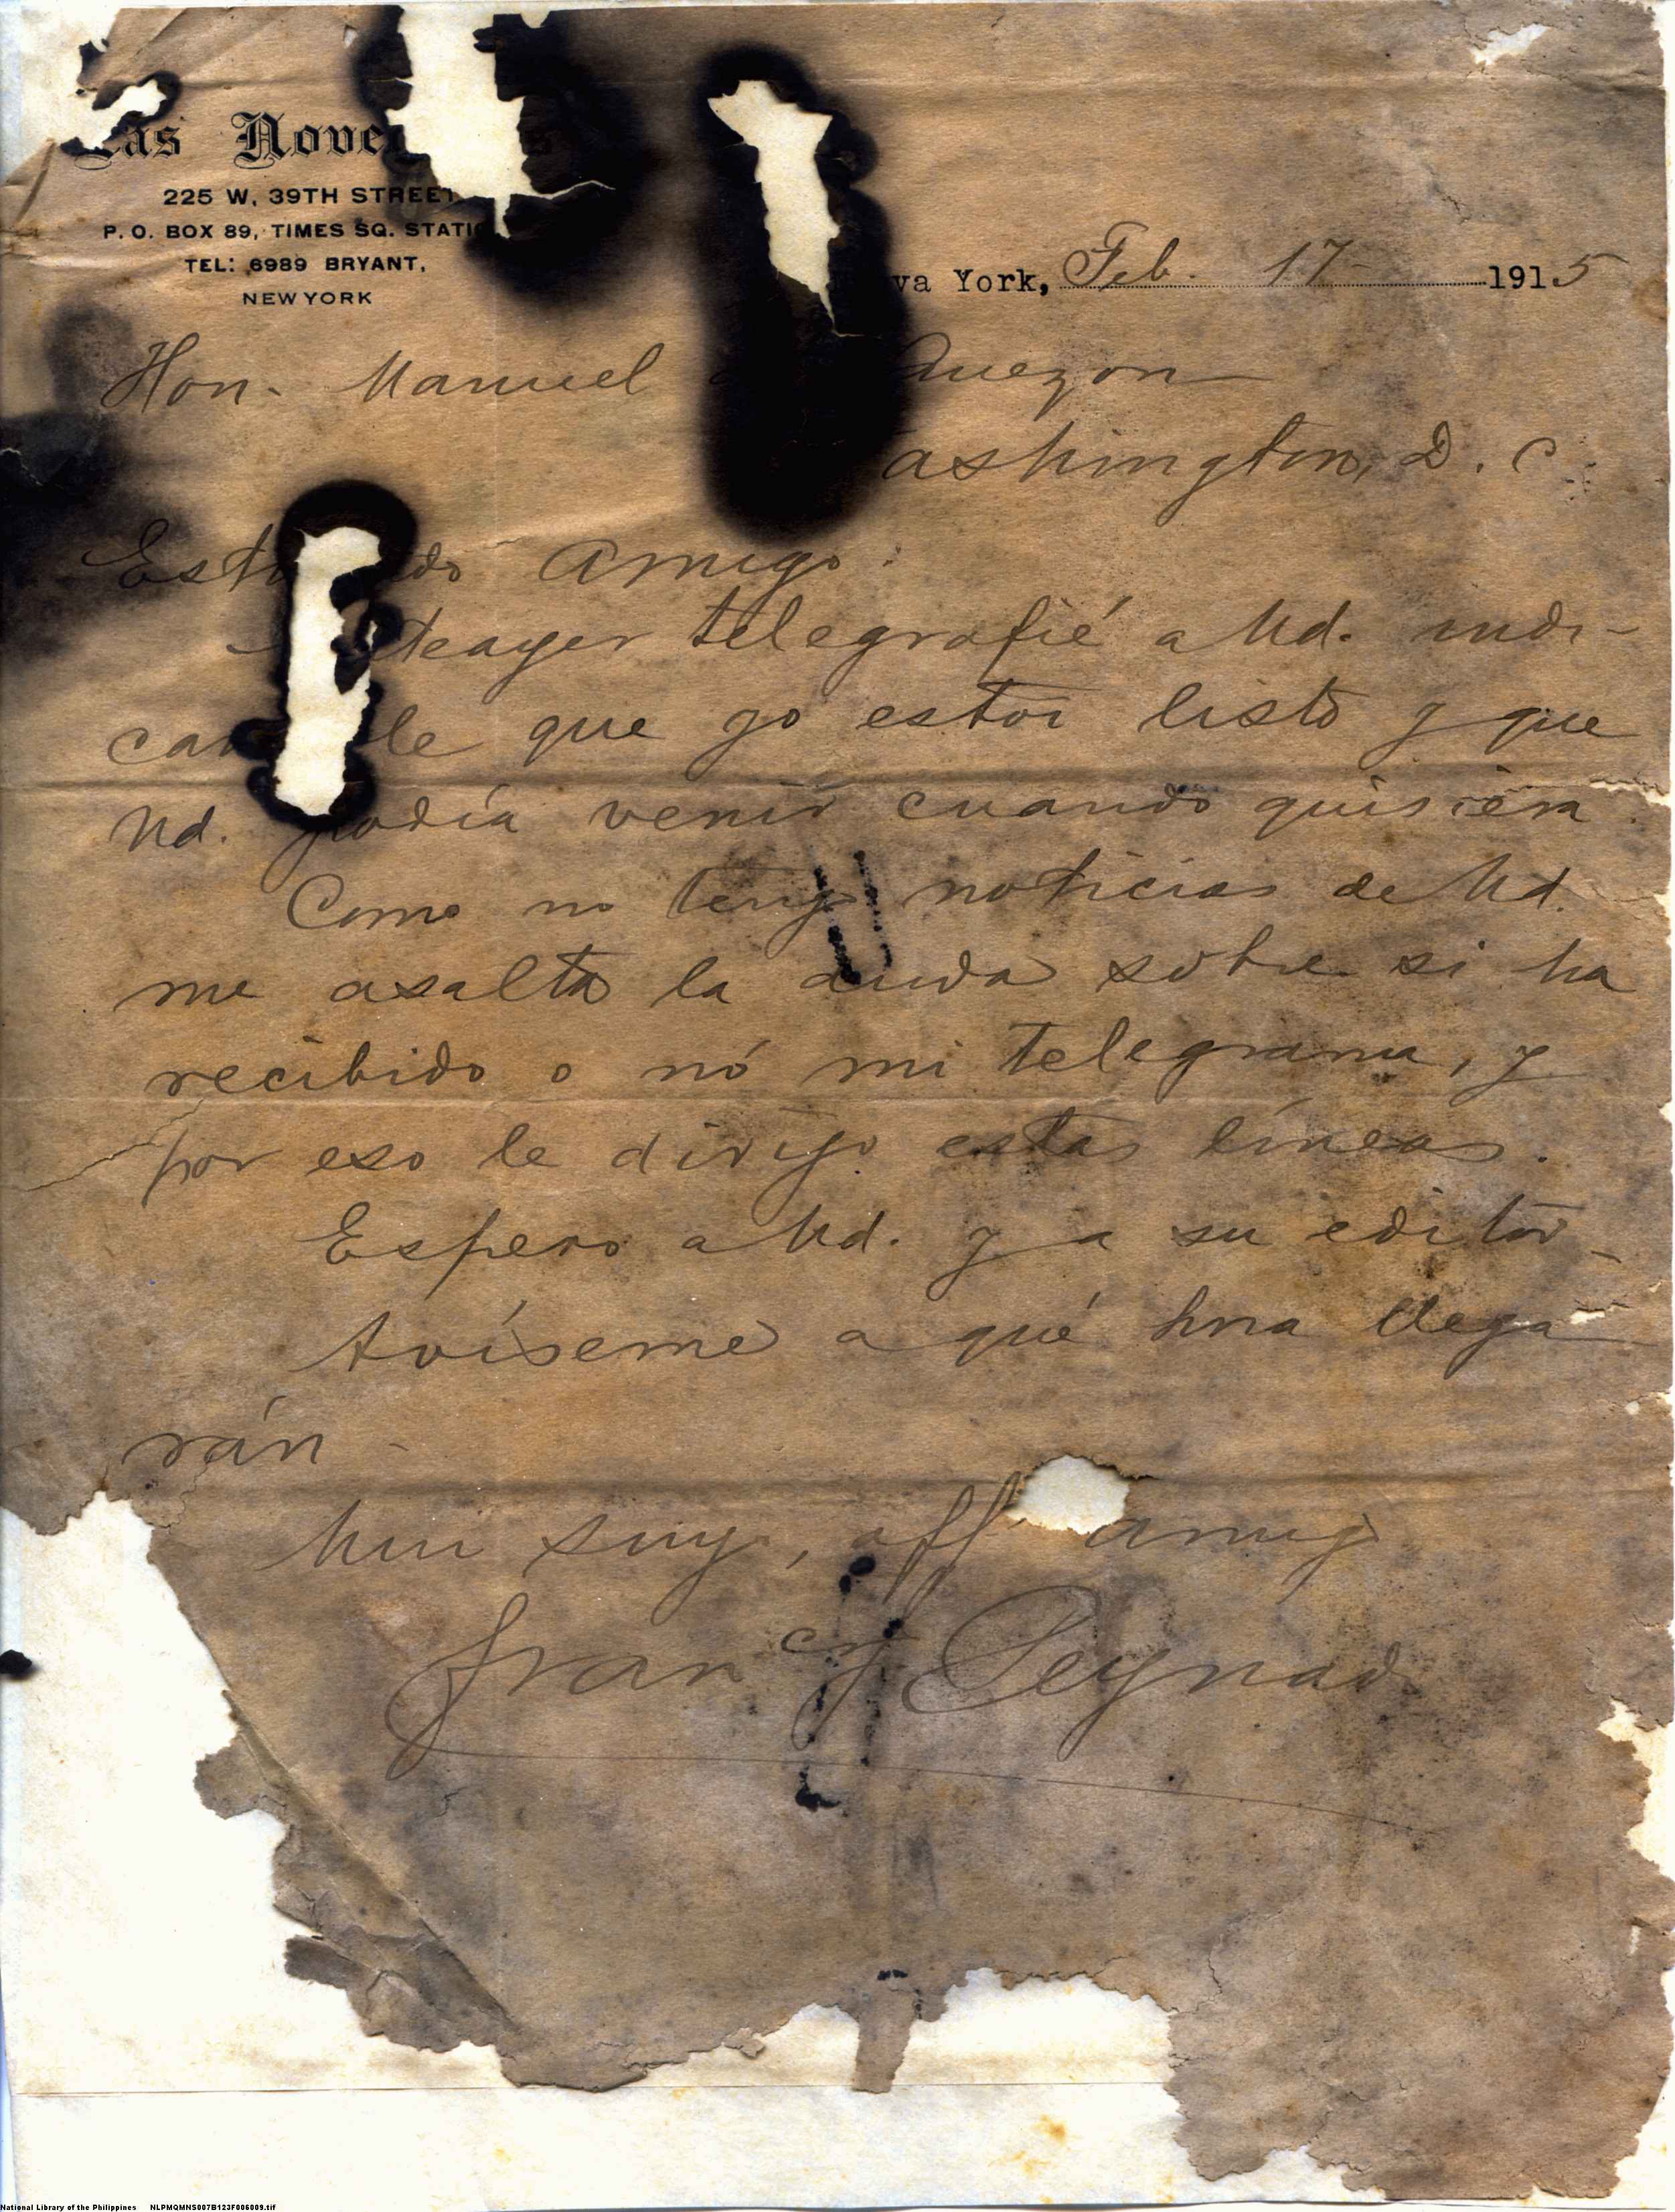 Las Nove
225 W. 39TH STREET
P. O. BOX 89, TIMES SQ. STATI
TEL: 6989 BRYANT,
NEW YORK
va York, Feb. 17 1915
Hon. Manuel Quezon
ashington, D. C.
Est do amigo:
teayer telegrafié a Ud. indi-
can le que yo estoi listo y que
Ud. podía venir cuando quisiera.
Como no tengo noticias de Ud.
me asalta la duda sobre si ha
recibido o nó mi telegrama, y
por eso le dirijo estas líneas.
Espero a Ud. y a su editor.
Avíseme a qué hora llega
rán.
Mui suyo, aff amigo
Fran J Peynado
National Library of the Philippines NLPMQMNS007B123F006009.tif